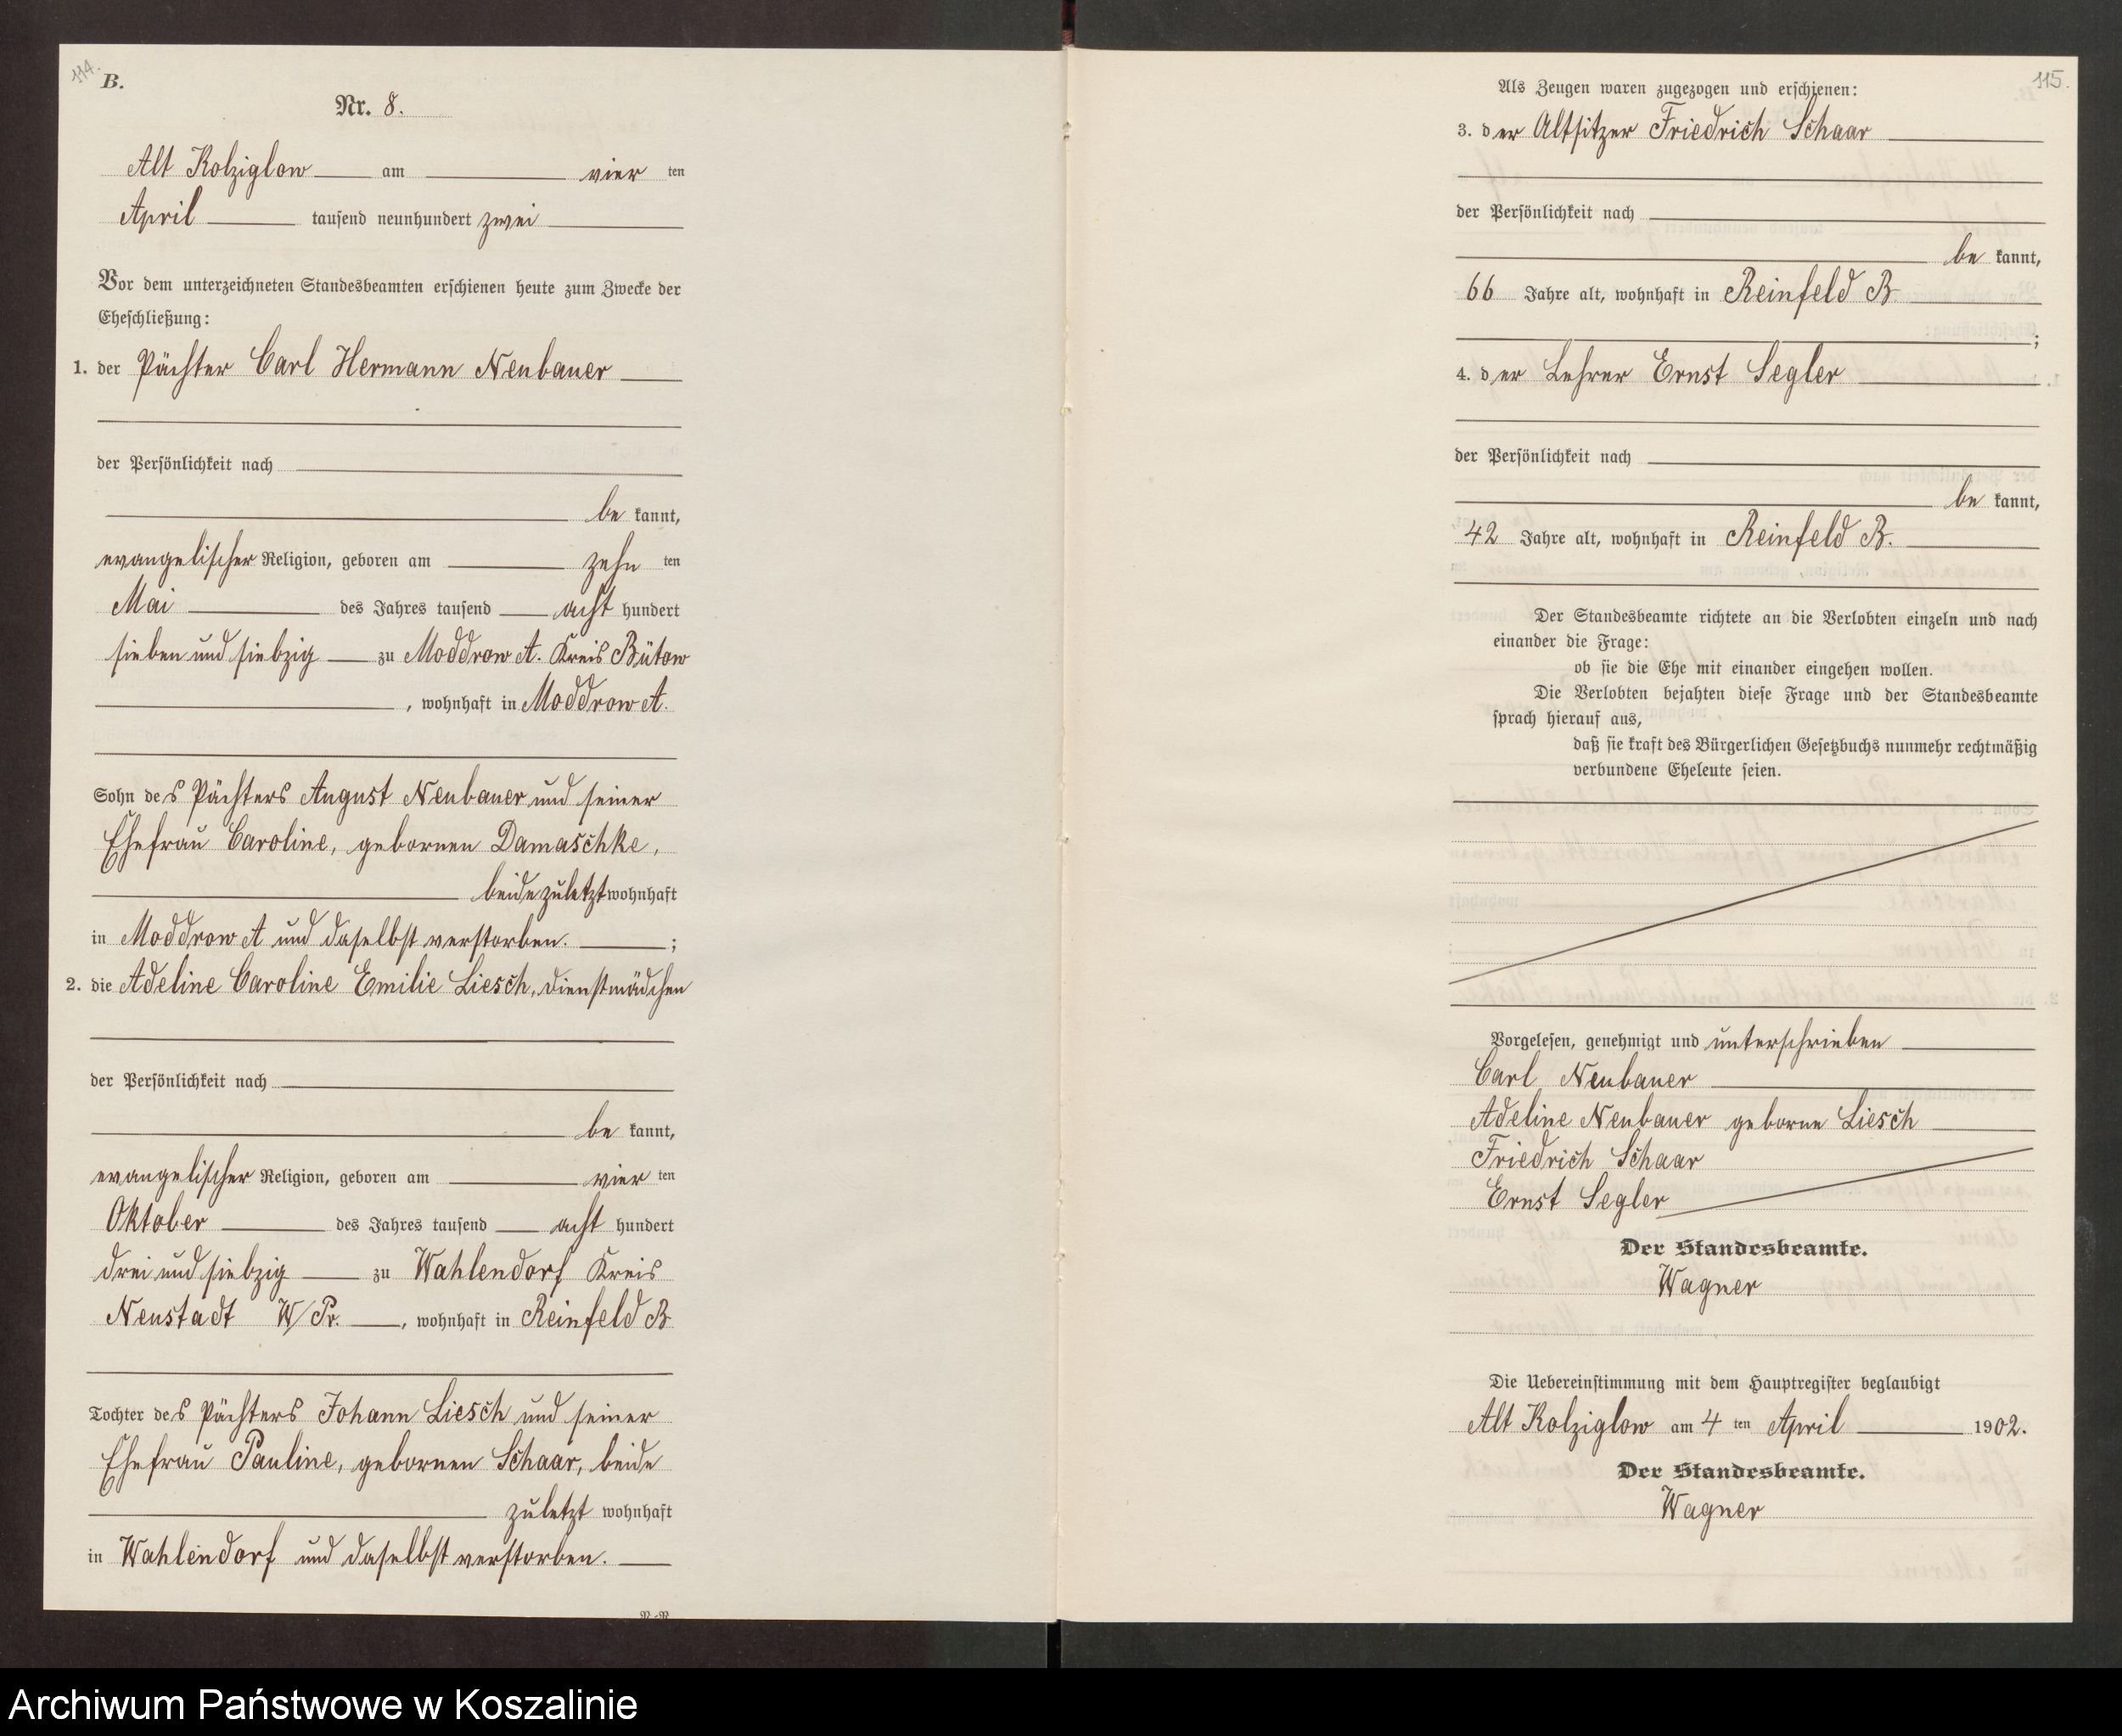 114.
B.
Nr. 8.
Alt Kolziglow am vier ten
April tausend neunhundert zwei
Vor dem unterzeichneten Standesbeamten erschienen heute zum Zwecke der
Eheschließung:
1. der Pächter Carl Hermann Neubauer
der Persönlichkeit nach
be kannt,
evangelischer Religion, geboren am zehn ten
Mai des Jahres tausend acht hundert
sieben und siebzig zu Moddrow A. Kreis Bütow
, wohnhaft in Moddrow A.
Sohn des Pächters August Neubauer und seiner
Ehefrau Caroline, gebornen Damaschke,
beide zuletzt wohnhaft
in Moddrow A und daselbst verstorben. ;
2. die Adeline Caroline Emilie Liesch, Dienstmädchen
der Persönlichkeit nach
be kannt,
evangelischer Religion, geboren am vier ten
Oktober des Jahres tausend acht hundert
drei und siebzig zu Wahlendorf Kreis
Neustadt W/Pr. , wohnhaft in Reinfeld B
Tochter des Pächters Johann Liesch und seiner
Ehefrau Pauline, gebornen Schaar, beide
zuletzt wohnhaft
in Wahlendorf und daselbst verstorben.
115.
Als Zeugen waren zugezogen und erschienen:
3. der Altsitzer Friedrich Schaar
der Persönlichkeit nach
be kannt,
66 Jahre alt, wohnhaft in Reinfeld B
;
4. der Lehrer Ernst Segler
der Persönlichkeit nach
be kannt,
42 Jahre alt, wohnhaft in Reinfeld B.
Der Standesbeamte richtete an die Verlobten einzeln und nach
einander die Frage:
ob sie die Ehe mit einander eingehen wollen.
Die Verlobten bejahten diese Frage und der Standesbeamte
sprach hierauf aus,
daß sie kraft des Bürgerlichen Gesetzbuchs nunmehr rechtmäßig
verbundene Eheleute seien.
Vorgelesen, genehmigt und unterschrieben
Carl Neubauer
Adeline Neubauer geborne Liesch
Friedrich Schaar
Ernst Segler
Der Standesbeamte.
Wagner
Die Uebereinstimmung mit dem Hauptregister beglaubigt
Alt Kolziglow am 4 ten April 1902.
Der Standesbeamte.
Wagner
Archiwum Państwowe w Koszalinie